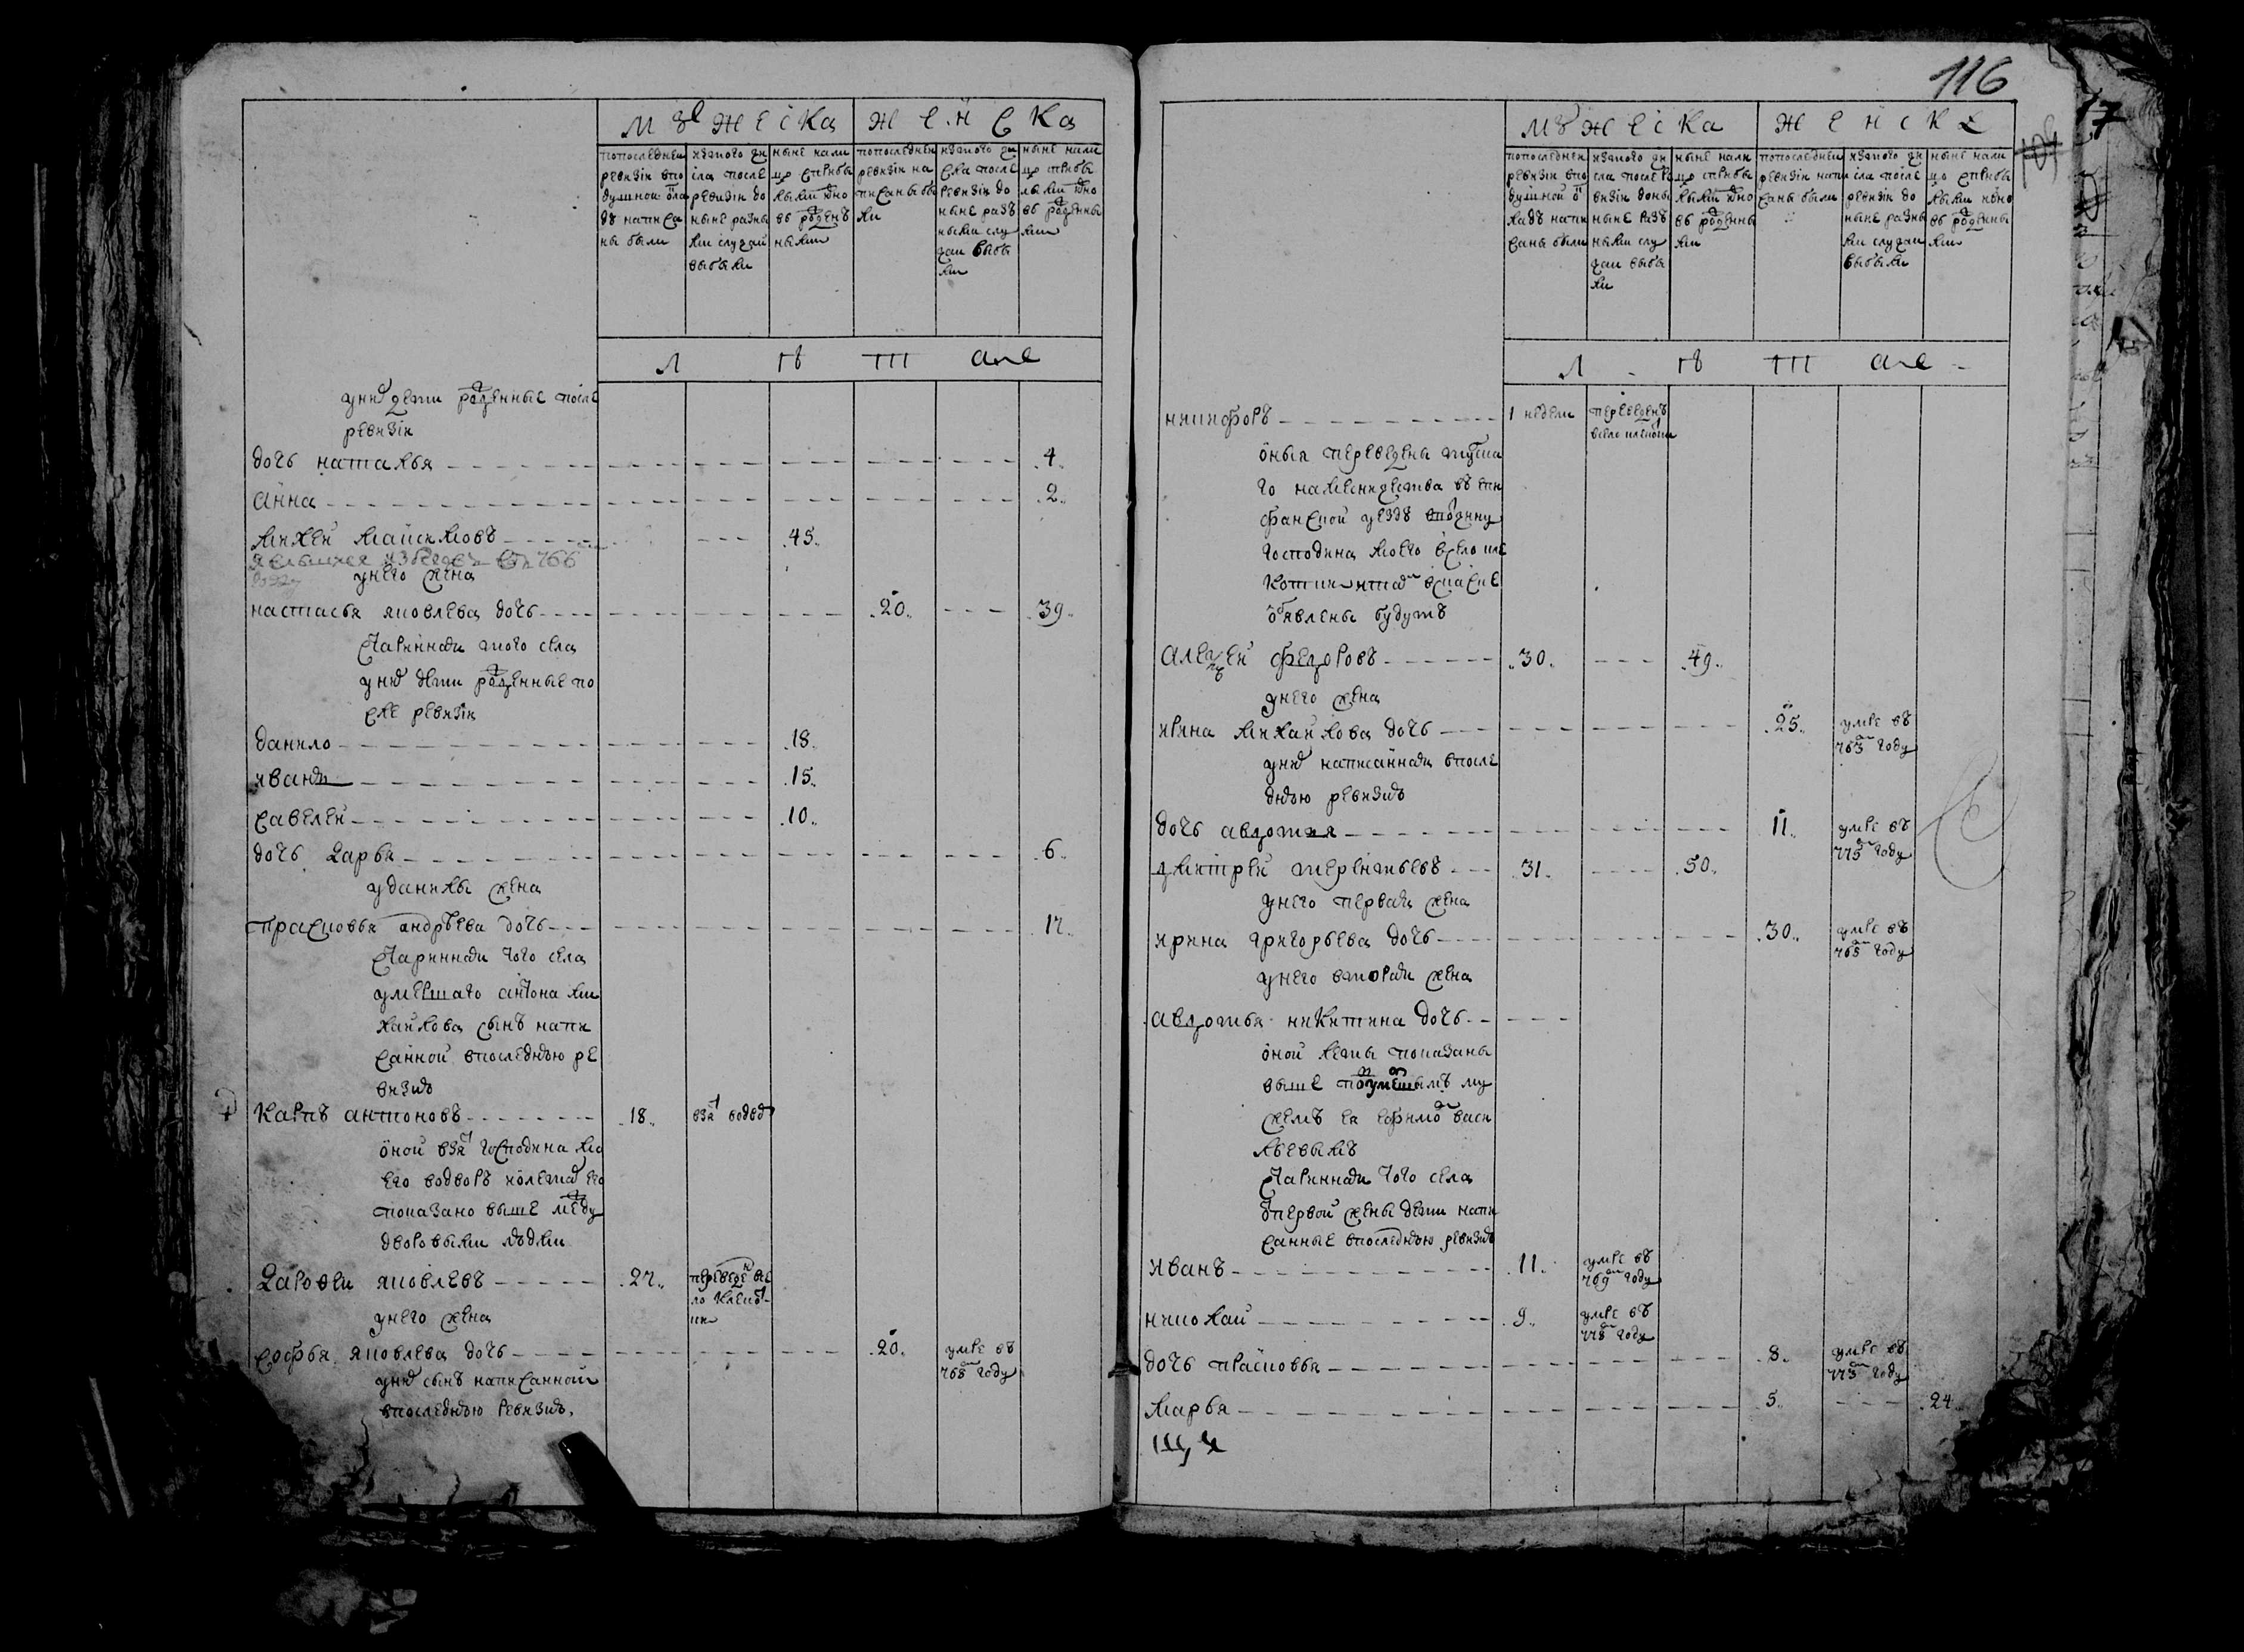 мужеска женска
попоследней ревизiи впо душной окла дъ написа ны были
изтого чи сла после ревизiи до ныне разны ми случаи выбыли
ныне нали цо сприбы лыми и вно вь рожденъ ными
попоследней ревизiи на писаны бы ли
изтого чи сла после ревизiи до ныне разъ ными слу чаи выбы ли
ныне нали цо сприбы лыми и вно вь рожденны ми
л ѣ т ане
унихъ дети рожденные после
ревизiи
дочь наталья 4
анна 2
михей моисиловъ 45
явился из бегов в 766
году
унего жена
настасья яковлева дочь 20 39
стариннаи того села
унихъ дети рожденные по
сле ревизiи
данило 18
иванъ 15
савелей 10
дочь дарья 6
уданилы жена
прасковья андрѣева дочь 17
стариннаи того села
умершаго антона ми
хайлова сынъ напи
санной впоследнюю ре
визию
карпъ антоновъ 18 взятъ водворъ
оной взятъ господина мо
его водворъ иолетахъ его
показано выше между
дворовыми людми
дарофеи яковлевъ 27 переведенъ все
ло клекот
ки
унего жена
софья яковлева дочь 20 умре въ
768м году
унихъ сынъ написанной
впоследнюю ревизию
116
мужеска женске
попоследней ревизiи впо душной о кладъ напи саны были
изтого чи сла после ре визiи доны ныне разъ ными слу чаи выбы ли
ныне нали цо сприбы лыми и вно вь рожденны ми
попоследней ревизiи напи саны были
изтого чи сла после ревизiи до ныне разны ми случаи выбыли
ныне нали цо сприбы лыми ивно вь рожденны ми
л ѣ т ане
никифоръ 1 недели переведенъ
всело клекотки
оныя переведены
го наместничества въ епи
фанской уездъ вводчину
господина моего всело кле
котки итамъ вскаске
объявлены будутъ
алексей федоровъ 30 49
унего жена
ирина михайлова дочь 25 умре въ
763м году
унихъ написаннаи впосле
днюю ревизию
дочь авдотья 11 умре въ
775м году
дмитрей терентьевъ 31 50
унего перваи жена
ирина григорьева дочь 30 умре въ
765м году
унего втораи жена
авдотья никитина дочь
оной леты показаны
выше поумершымъ му
жемъ ея ефимомъ васи
льевымъ
стариннаи того села
отпервой жены дети напи
санные впоследнюю ревизию
иванъ 11 умре въ
769м году
николай 9 умре въ
778м году
дочь прасковья 8 умре въ
773м году
марья 5 24